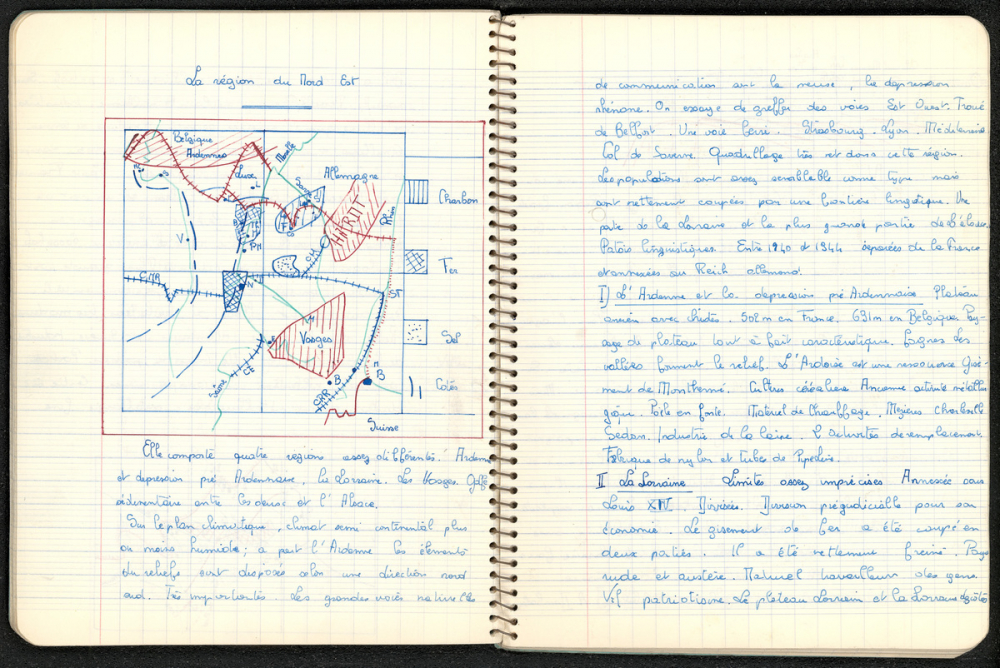 La région du Nord Est
Belgique
Ardennes
Luxe
L
Moselle
Sarre
Allemagne
Charbon
HARDT
Rhin
V
PH
Fer
CMR
N
ST
Sel
Vosges
Saône
CE
B
B
Cotes
CRR
Suisse
Elle comporte quatre régions assez différentes. Ardenne
et dépression pré Ardennaise, la Lorraine. Les Vosges. Golfe
sédimentaire entre les deux et l'Alsace.
Sur le plan climatique, climat semi continental plus
ou moins humide; a part l'Ardenne les éléments
du reliefs sont disposés selon une direction nord
sud. Très importantes. Les grandes voies naturelles
de communication sont la meuse, la dépression
rhénane. On essaye de greffer des voies Est Ouest. Troué
de Belfort. Une voie ferré. Strasbourg. Lyon. Méditerranée
Col de Saverne. Quadrillage très net dans cette région.
Les populations sont assez semblable comme type mais
sont nettement coupées par une frontière linguistique. Une
partie de la Lorraine et la plus grande partie de
Patois linguistiques. Entre 1940 et 1944 séparées de la France
et annexées au Reich allemand.
I) L'Ardenne et la depression pré Ardennaise Plateau
ancien avec chistes. 502m en France. 691m en Belgique. Pay-
sage de plateau tout à fait caractéristique. Fagnes. Les
vallées forment le relief. L'Ardoise est une ressource Gise-
ment de Monthermé. Cultures céréalière Ancienne activité métallur
gique. Poele en fonte. Matériel de Chauffage. Mézières Charleville
Sedan. Industrie de la laine. 2 activités de remplacement.
Fabrique de nylon et tubes de Pipeline.
II La Lorraine Limites assez imprécises Annexée sous
Louis XIV. Divisées. Division préjudiciable pour son
économie. Le gisement de fer a été coupé en
deux parties. Il a été nettement freiné. Pays
rude et austère. Naturel travailleur des gens.
Vif patriotisme. Le plateau Lorrain et la Lorraine des côtes